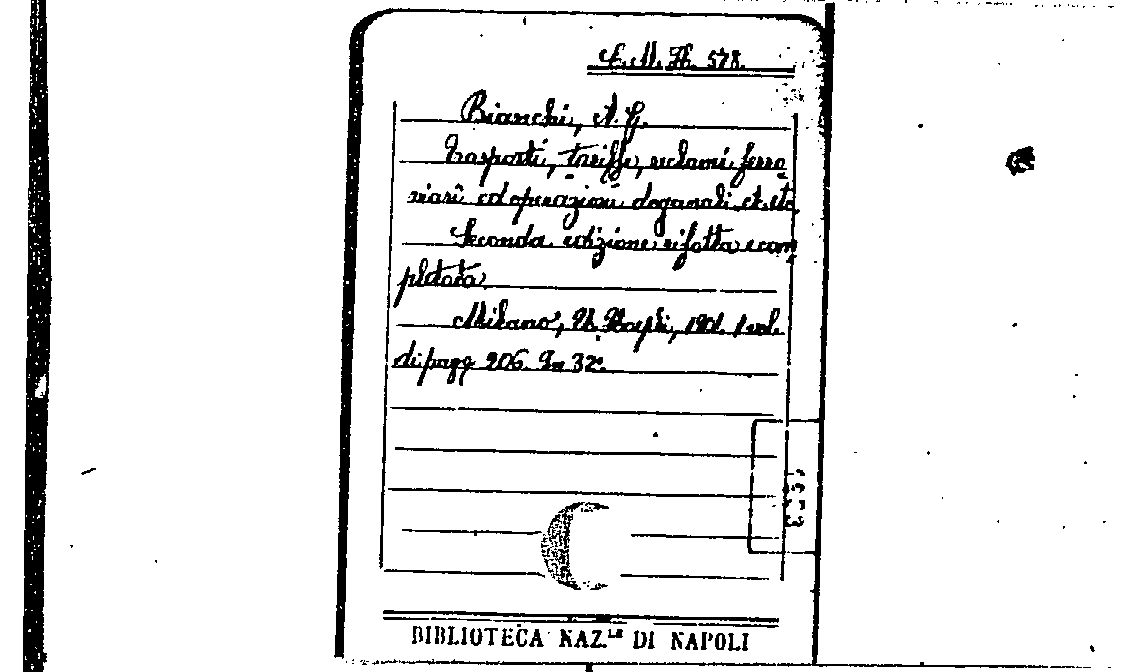 578.
Bianchi, A. G.
Trasporti, tariffe, reclami ferro=
viarî ed operazioni doganali etc. etc.
Seconda edizione rifatta e com=
pletata
Milano, U. Hoepli, 1901. 1 vol.
di pagg 206. In 32º.
BIBLIOTECA NAZ.LE DI NAPOLI